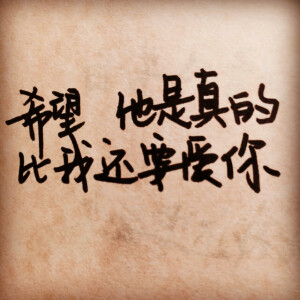 希望 他是真的
比我还要爱你